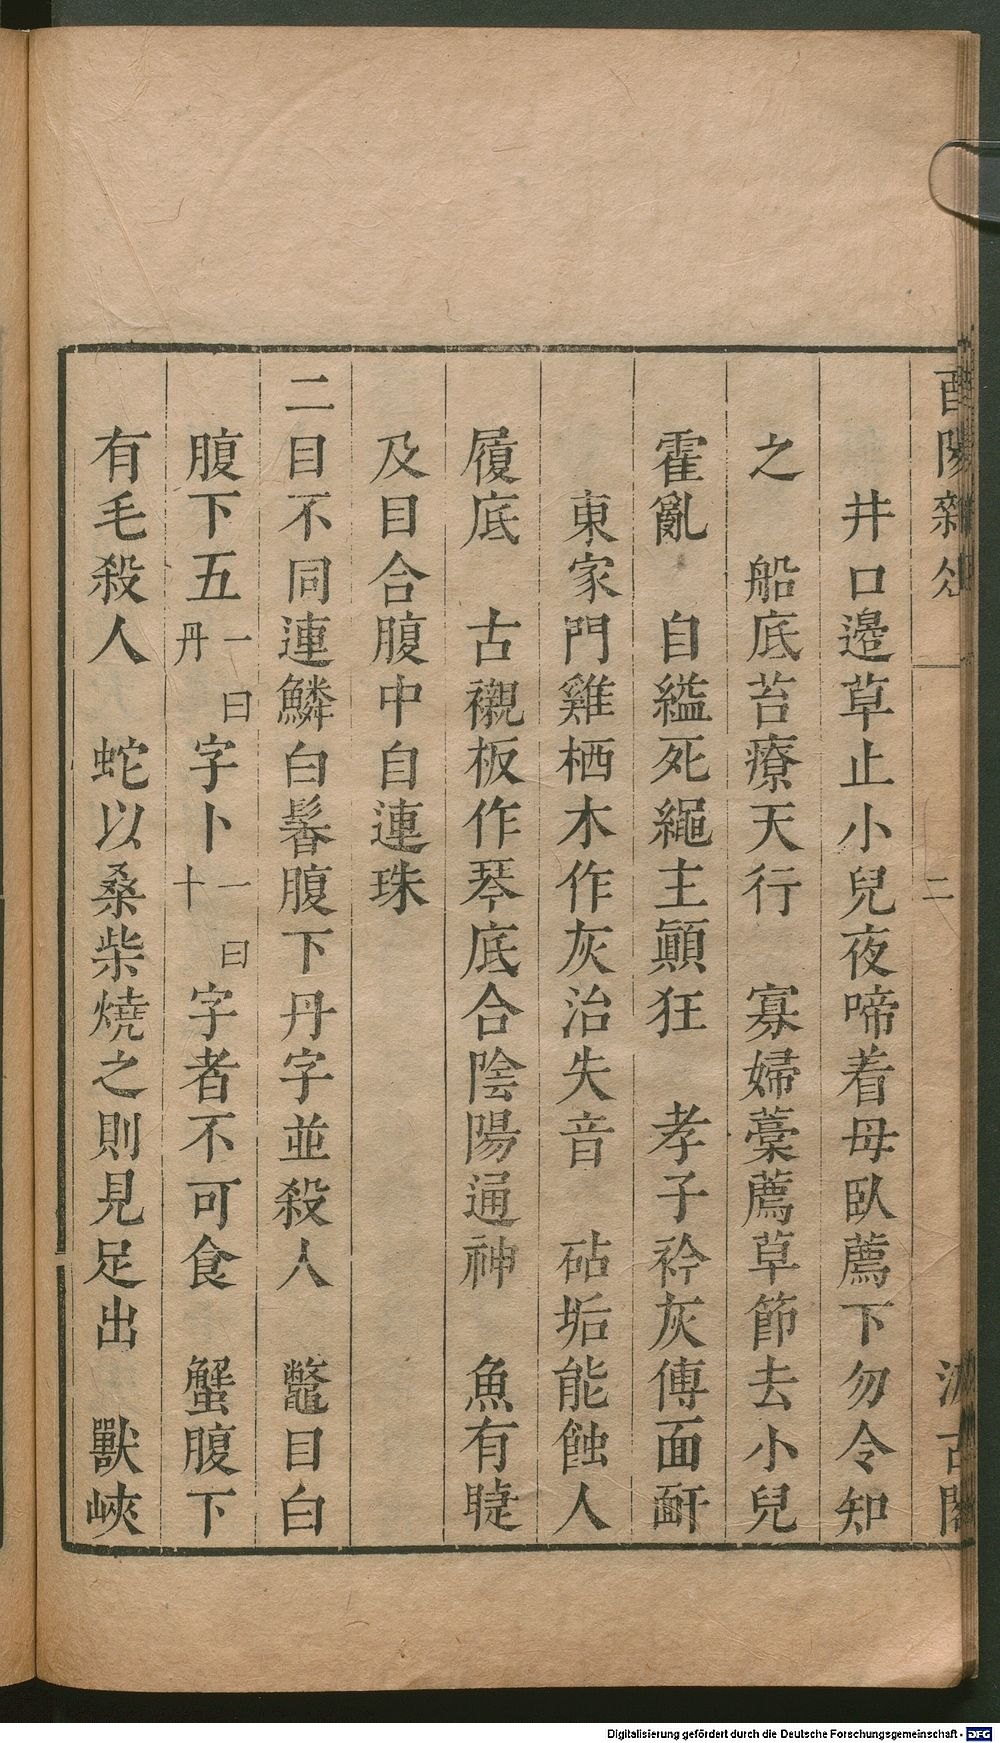 酉陽雜俎 二 汲古閣
井口邊草止小兒夜啼着母臥薦下勿令知
之 船底苔療天行 寡婦藁薦草節去小兒
霍亂 自縊死繩主顛狂 孝子衿灰傅面皯
東家門雞栖木作灰治失音 砧垢能蝕人
履底 古櫬板作琴底合陰陽通神 魚有睫
及目合腹中自連珠
二目不同連鱗白鬐腹下丹字並殺人 鼈目白
腹下五一曰丹字卜一曰十字者不可食 蟹腹下
有毛殺人 蛇以桑柴燒之則見足出 獸峽
Digitalisierung gefördert durch die Deutsche Forschungsgemeinschaft - DFG